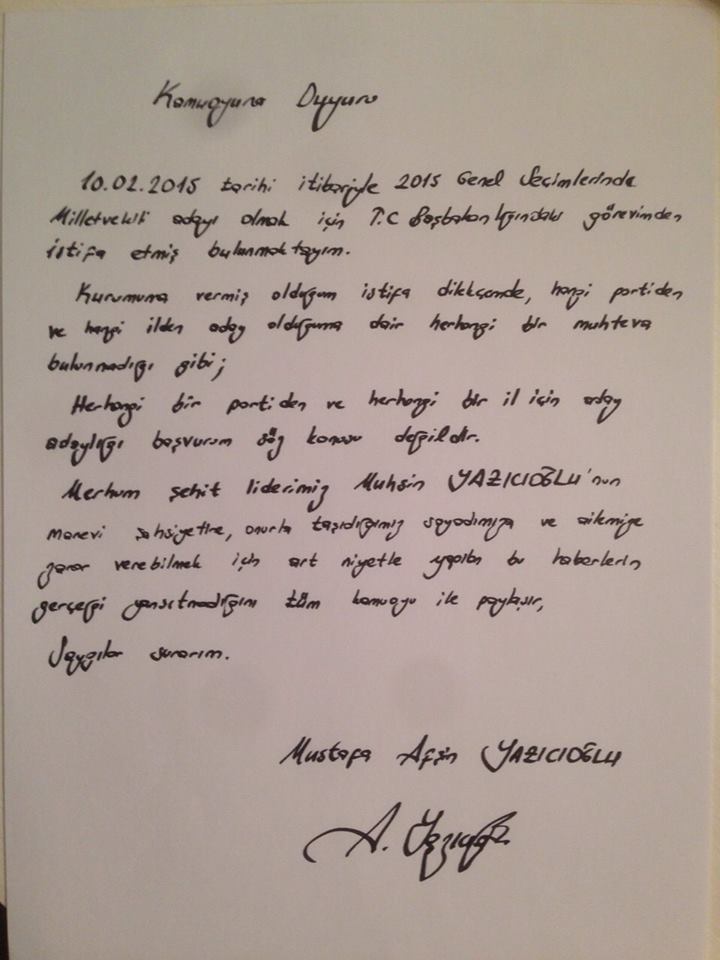 Kamuoyuna Duyuru
10.02.2015 tarihi itibariyle 2015 Genel Seçimlerinde
Milletvekili adayı olmak için T.C Başbakanlığındaki görevimden
istifa etmiş bulunmaktayım.
Kurumuma vermiş olduğum istifa dilekçemde, hangi partiden
ve hangi ilden aday olduğuma dair herhangi bir muhteva
bulunmadığı gibi;
Herhangi bir partiden ve herhangi bir il için aday
adaylığı başvurum söz konusu değildir.
Merhum şehit liderimiz Muhsin YAZICIOĞLU'nun
manevi şahsiyetine, onurla taşıdığımız soyadımıza ve ailemize
zarar verebilmek için art niyetle yapılan bu haberlerin
gerçeği yansıtmadığını tüm kamuoyu ile paylaşır,
Saygılar sunarım.
Mustafa Afşin YAZICIOĞLU
A. Yazıcıoğlu